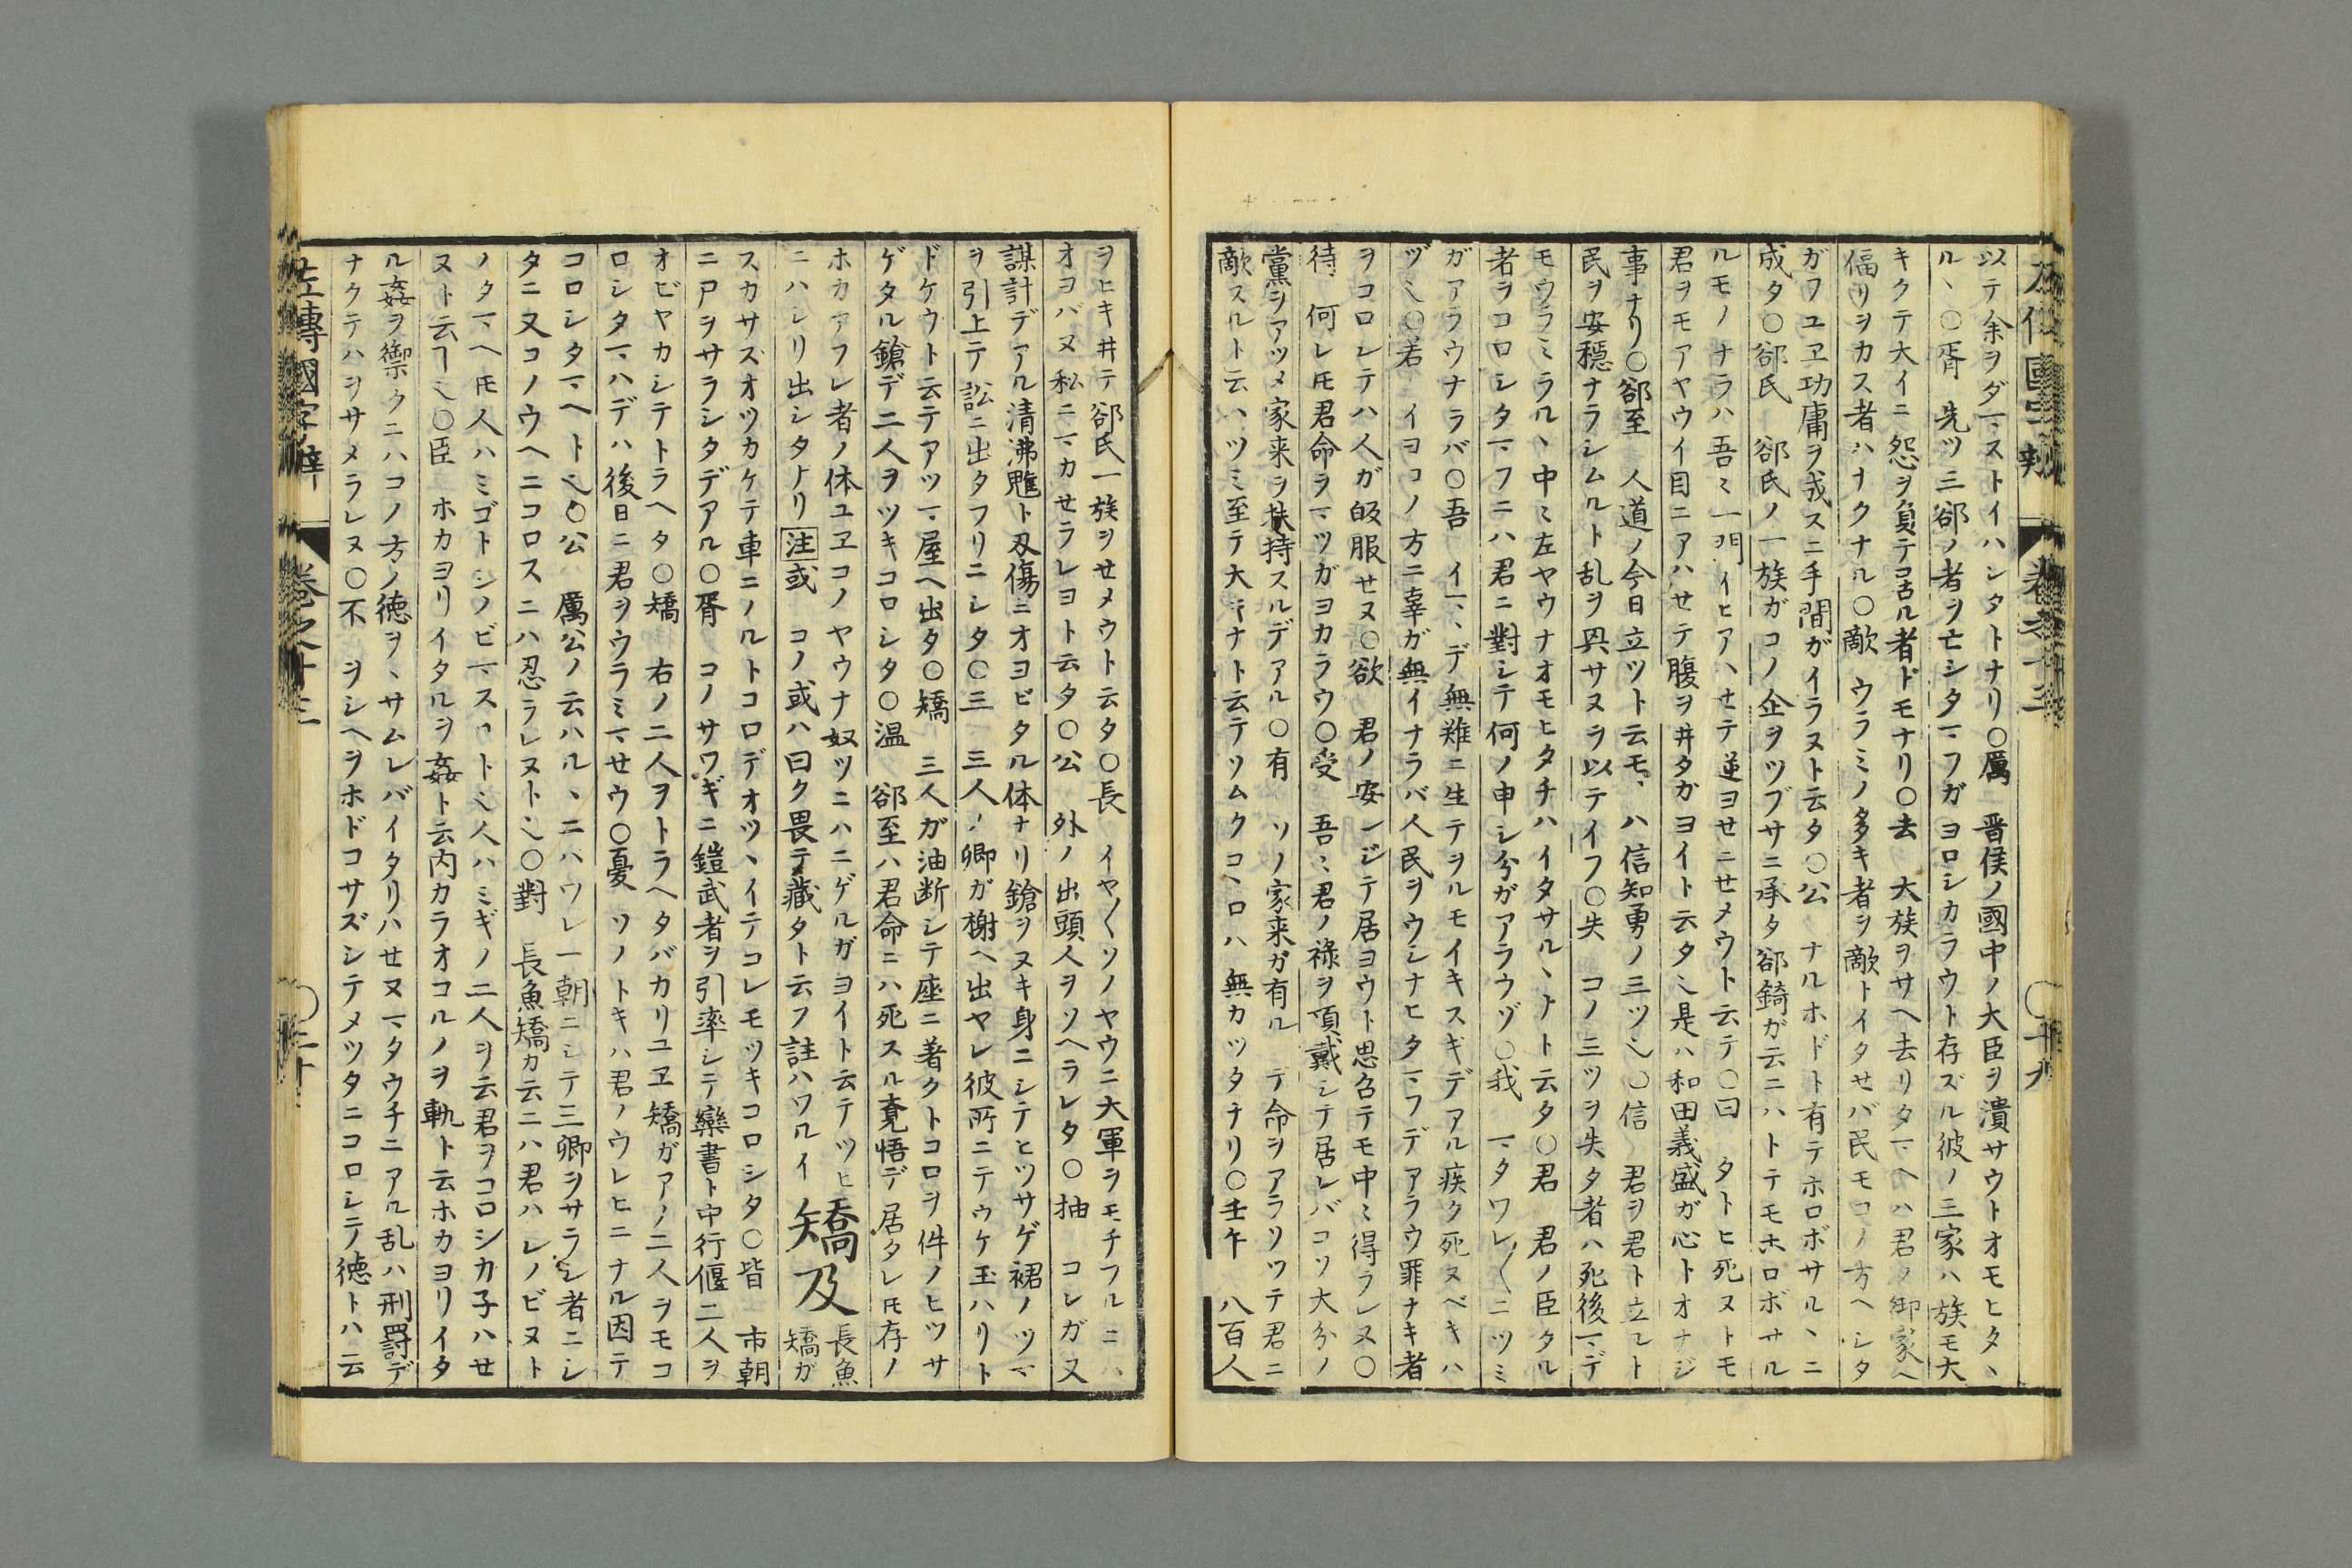 以テ余ヲダマストイハシタトナリ○厲 晋侯ノ國中ノ大臣ヲ潰サウトオモヒタヽ
ルヽ○胥 先ツ三郤ノ者ヲ亡シタマフガヨロシカラウト存ズル彼ノ三家ハ族モ大
キクテ大イニ怨ヲ負テ居ル者ドモナリ○去 大族ヲサヘ去リタマヘハ君ノ御家ヘ
偪リヲカス者ハナクナル○敵 ウラミノ多キ者ヲ敵トイタセバ民モコノ方ヘシタ
ガフユヱ功庸ヲ成スニ手間ガイラヌト云タ○公 ナルホドト有テホロボサルヽニ
成タ○郤氏 郤氏ノ一族ガコノ企ヲツブサニ承タ郤錡ガ云ニハトテモホロボサル
ルモノナラハ吾ミ一門イヒアハセテ逆ヨセニセメウト云テ○曰 タトヒ死ヌトモ
君ヲモアヤウイ目ニアハセテ腹ヲ井タガヨイト云タ〻是ハ和田義盛ガ心トオナジ
事ナリ○郤至 人道ノ今日立ツト云モヽハ信知勇ノ三ツ〻○信 君ヲ君ト立レト
民ヲ安穏ナラシムルト乱ヲ興サヌヲ以テイフ○失 コノ三ツヲ失タ者ハ死後マデ
モウラミラルヽ中ミ左ヤウナオモヒタチハイタサルヽナト云タ○君 君ノ臣タル
者ヲコロシタマフニハ君ニ對シテ何ノ申シ分ガアラウゾ○我 マタワレ〱ニツミ
ガアラウナラバ○吾 イマヽデ無難ニ生テヲルモイキスギデアル疾ク死ヌベキハ
ヅ〻○若 イヨコノ方ニ辜ガ無イナラバ人民ヲウシナヒタマフデアラウ罪ナキ者
ヲコロシテハ人ガ皈服セヌ○欲 君ノ安ンジテ居ヨウト思召テモ中ミ得ラレヌ○
待 何レ𪜈君命ヲマツガヨカラウ○受 吾ミ君ノ祿ヲ頂戴シテ居レバコソ大分ノ
黨ヲアツメ家来ヲ扶持スルデアル○有 ソノ家来ガ有ル デ命ヲアラソッテ君ニ
敵スルト云ハツミ至テ大キナト云テツムクコヽロハ無カツタナリ○壬午 八百人
ヲヒキ井テ郤氏一族ヲセメウト云タ○長 イヤ〱ソノヤウニ大軍ヲモチフルニハ
オヨバヌ私ニマカセラレヨト云タ○公 外ノ出頭人ヲソヘラレタ○抽 コレガ又
謀計デアル清沸魋ト刄傷ニオヨビタル体ナリ鎗ヲヌキ身ニシテヒツサゲ裙ノツマ
ヲ引上テ訟ニ出タフリニシタ○三 三人ノ卿ガ榭ヘ出ヤレ彼所ニテウケ玉ハリト
ドケウト云テアツマ屋ヘ出タ○矯 三人ガ油断シテ座ニ著クトコロヲ件ノヒツサ
ゲタル鎗デ二人ヲツキコロシタ○温 郤至ハ君命ニハ死スル覚悟デ居タレ𪜈存ノ
ホカアフレ者ノ休ユヱコノヤウナ奴ツニハニゲルガヨイト云テツヒ
ニハシリ出シタナリ注或 コノ或ハ曰ク畏テ藏タト云フ註ハワルイ
矯及
長魚
矯ガ
スカサズオツカケテ車ニノルトコロデオツヽイテコレモツキコロシタ○皆 市朝
ニ尸ヲサラシタデアル○胥 コノサワギニ鎧武者ヲ引率シテ欒書ト中行偃二人ヲ
オビヤカシテトラヘタ○矯 右ノ二人ヲトラヘタバカリユヱ矯ガアノ二人ヲモコ
ロシタマハデハ後日ニ君ヲウラミマセウ○憂 ソノトキハ君ノウレヒニナル因テ
コロシタマヘト〻○公 厲公ノ云ハルヽニハワレ一朝ニシテ三卿ヲサラシ者ニシ
タニ又コノウヘニコロスニハ忍ラレヌト〻○對 長魚矯カ云ニハ君ハレノビヌト
ノタマヘ𪜈人ハミゴトシノビマスヿト〻人ハミギノ二人ヲ云君ヲコロシカ子ハセ
ヌト云ヿ〻○臣 ホカヨリイタルヲ姦ト云内カラオコルノヲ軌ト云ホカヨリイタ
ル姦ヲ禦クニハコノ方ノ徳ヲヽサムレバイタリハセヌマタウチニアル乱ハ刑罸デ
ナクテハヲサメラレヌ○不 ヲシヘヲホドコサズシテメツタニコロシテ徳トハ云
左傳國字辯 卷之十三